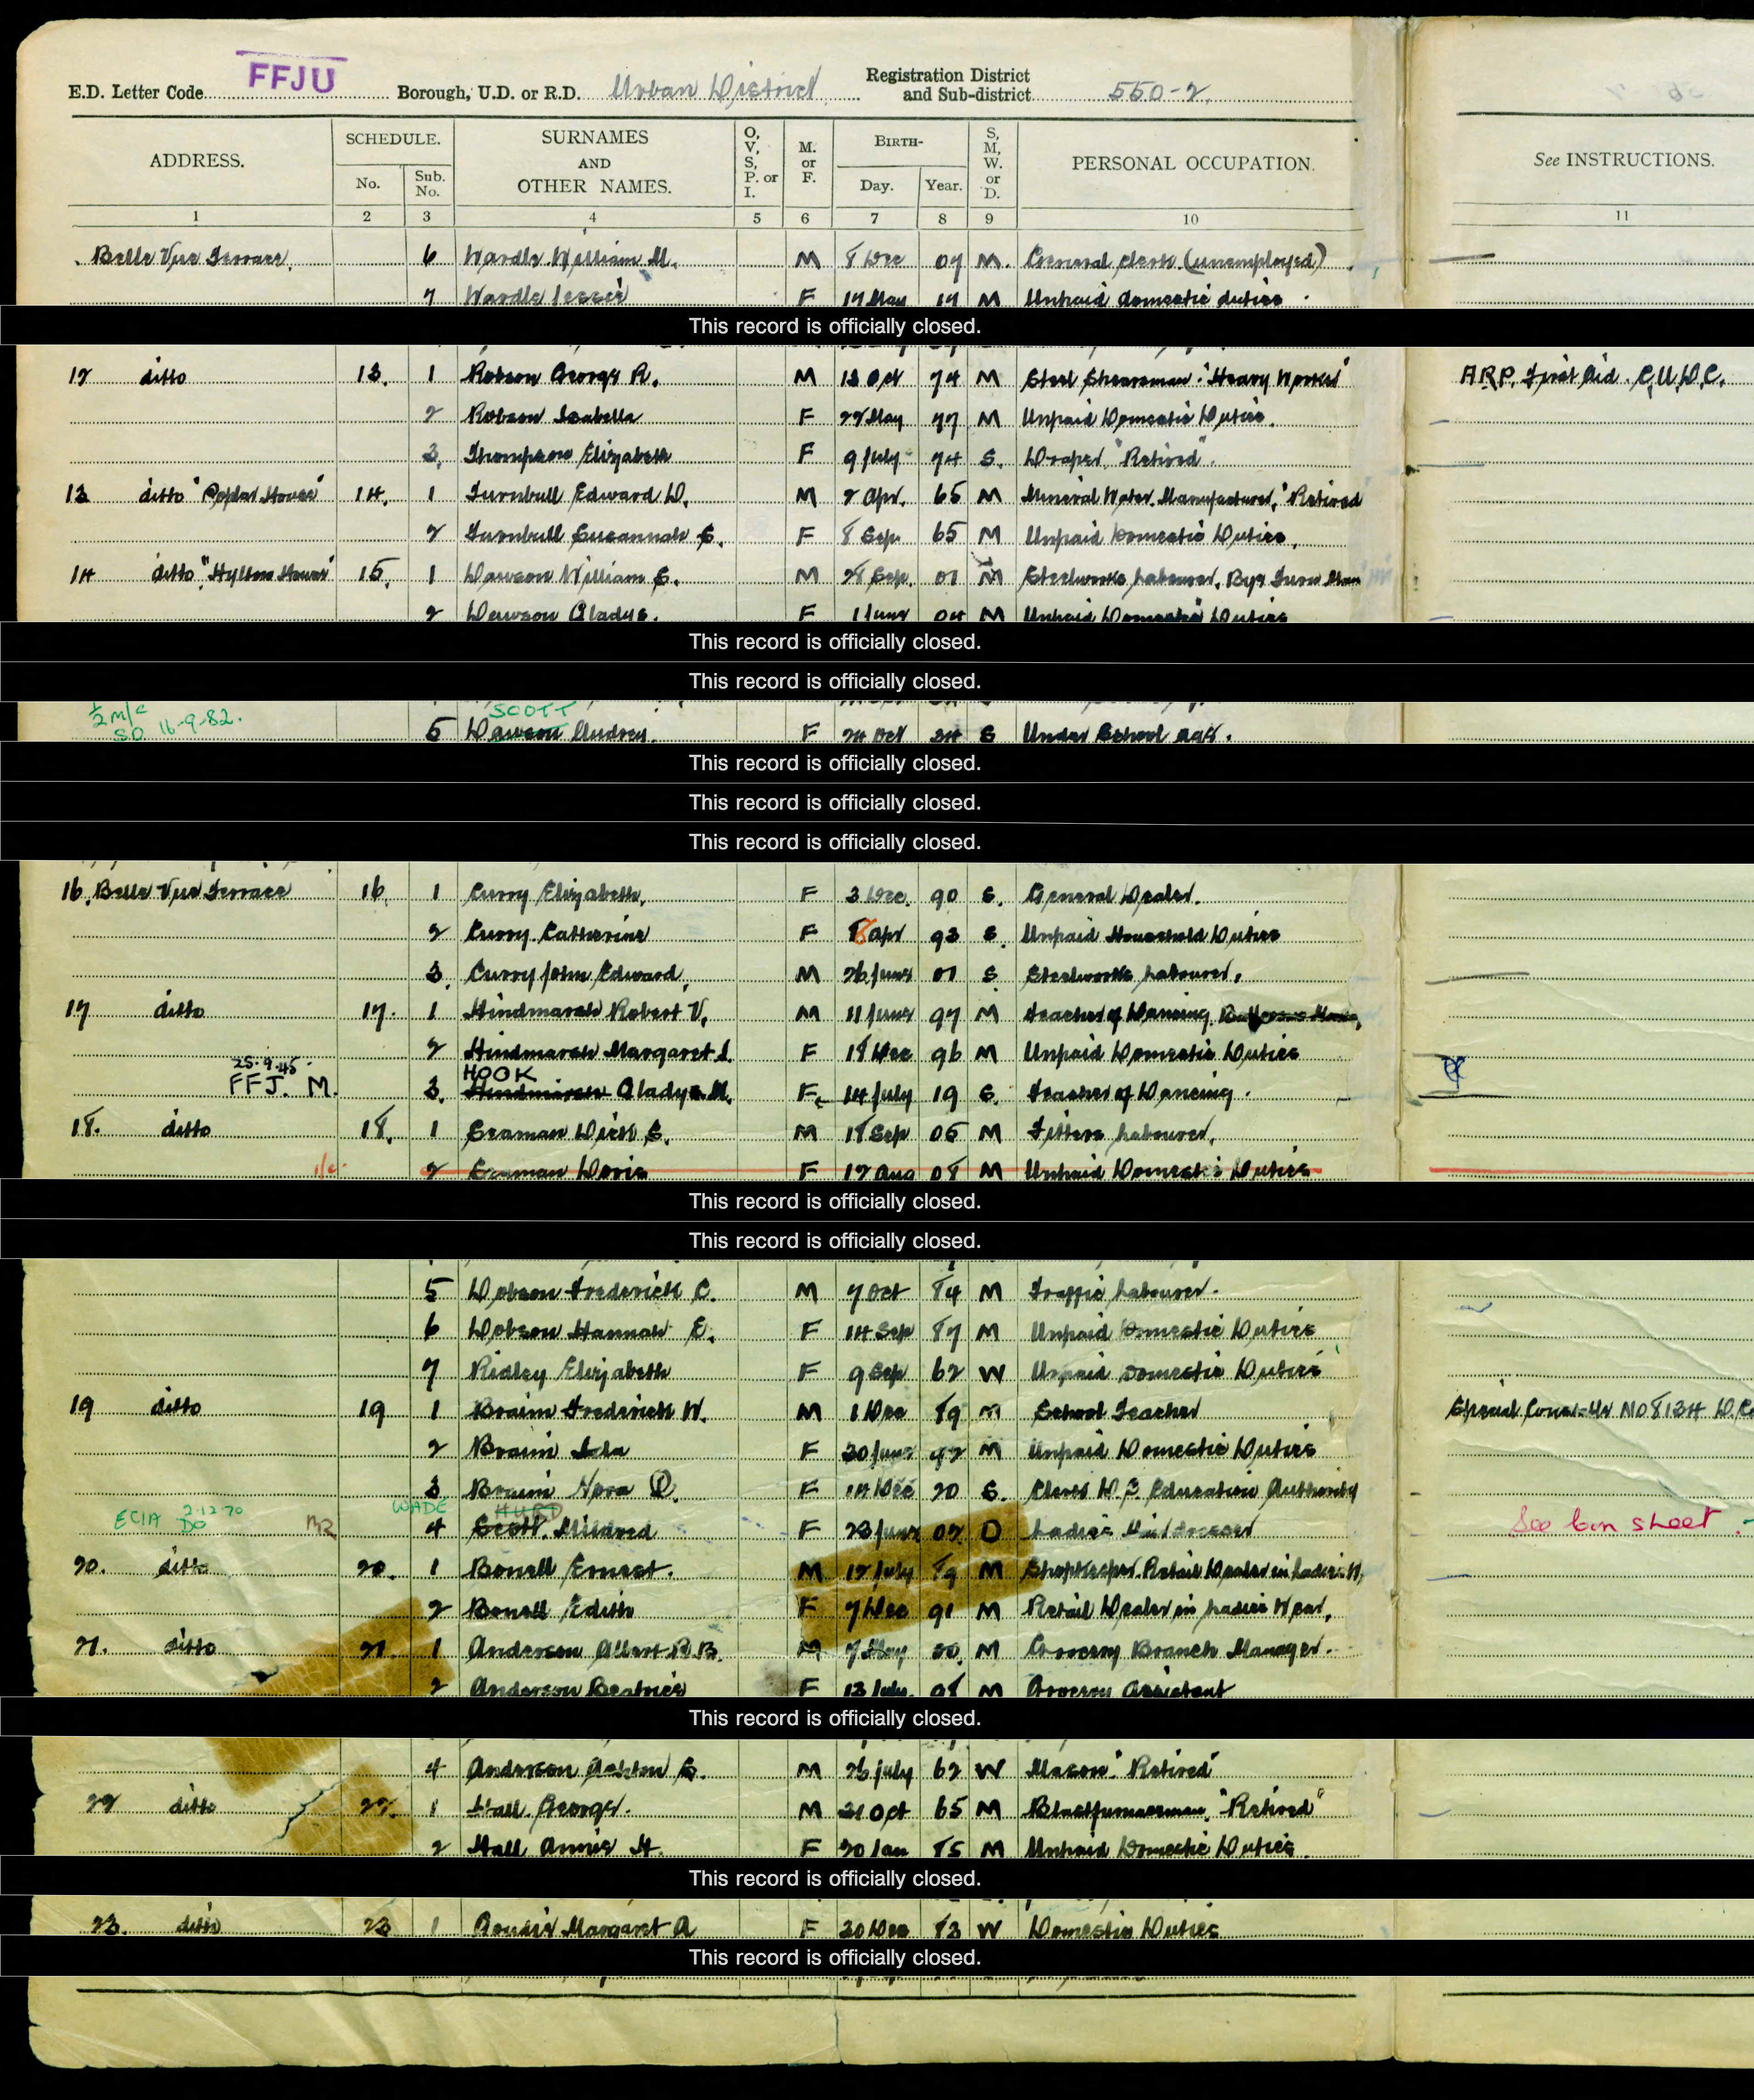 FFJU
E.D. Letter Code Borough, U.D. or R.D. Urban District Registration District and Sub-district 550-2.
ADDRESS. SCHEDULE. No. Sub. No. SURNAMES AND OTHER NAMES. O, V, S, P. or I. M. or F. BIRTH- Day. Year. S, M, W. or D. PERSONAL OCCUPATION. See INSTRUCTIONS.
1 2 3 4 5 6 7 8 9 10 11
Belle Vue Terrace. 6 Wardle William M. M 8 Dec 07 M. General clerk (unemployed)
7 Wardle Jessie F 17 May 17 M Unpaid domestic duties
This record is officially closed.
12 ditto 13. 1 Robson George R. M 13 Oct 74 M Steel Shearsman "Heavy Worker" A.R.P. First Aid. C.U.D.C.
2 Robson Isabella F 22 May 77 M Unpaid Domestic Duties.
3. Thompson Elizabeth F 9 July 74 S. Draper, "Retired".
13 ditto "Poplar House" 14. 1 Turnbull Edward D. M 2 Apr. 65 M Mineral Water Manufacturer, "Retired
2 Turnbull Susannah S. F 8 Sep. 65 M Unpaid Domestic Duties.
14 ditto "Hylton House" 15. 1 Dawson William S. M 28 Sep. 01 M Steelworks labourer,
2 Dawson Gladys. F 1 June 04 M Unpaid Domestic Duties
This record is officially closed.
This record is officially closed.
S.D. 16-9-82. SCOTT
5 Dawson Audrey. F 24 Oct 34 S Under School age.
This record is officially closed.
This record is officially closed.
This record is officially closed.
16. Belle Vue Terrace 16. 1 Curry Elizabeth. F 3 Dec. 90 S. General Dealer.
2 Curry Catherine F 8 Apr 93 S. Unpaid Household Duties
3. Curry John Edward. M 26 June 01 S Steelworks labourer.
17 ditto 17. 1 Hindmarsh Robert V. M 11 June 97 M Teacher of Dancing.
2 Hindmarsh Margaret I. F 18 Dec 96 M Unpaid Domestic Duties
25.9.45. HOOK
FFJ. M. 3. Hindmarsh Gladys M. F. 14 July 19 S. Teacher of Dancing.
18. ditto 18. 1 Seaman Dick S. M 18 Sep 05 M Fitters labourer.
2 Seaman Doris F 12 Aug 08 M Unpaid Domestic Duties
This record is officially closed.
This record is officially closed.
5 Dobson Frederick C. M 7 Oct 84 M Traffic labourer.
6 Dobson Hannah E. F 14 Sep 87 M Unpaid Domestic Duties
7 Ridley Elizabeth F 9 Sep 62 W Unpaid Domestic Duties
19 ditto 19 1 Braim Frederick W. M 1 Dec 89 M School Teacher Special No 8134
2 Braim Ida F 30 June 92 M Unpaid Domestic Duties
3 Braim Nora F 14 Dec 20 S. Clerk Education Authority
ECIA 2-12-70 DO MR WADE HURD
4 Scott. Mildred F 23 June 02. D Ladies Hairdresser See con sheet.
20. ditto 20. 1 Bonell Ernest. M 12 July 89 M Shopkeeper. Retail Dealer in Ladies W.
2 Bonell Edith F 7 Dec 91 M Retail Dealer in Ladies Wear.
21. ditto 21. 1 Anderson Albert R.B. M 7 May 00. M Grocery Branch Manager.
2 Anderson Beatrice F 13 July. 08 M Grocery Assistant
This record is officially closed.
4 Anderson Ashton S. M 26 July 62 W Mason "Retired"
22 ditto 22. 1 Hall George. M 31 Oct 65 M Blastfurnaceman. "Retired"
2 Hall Annie H. F 20 Jan 75 M Unpaid Domestic Duties.
This record is officially closed.
23. ditto 23 1 Margaret A F 30 Dec 83 W Domestic Duties
This record is officially closed.